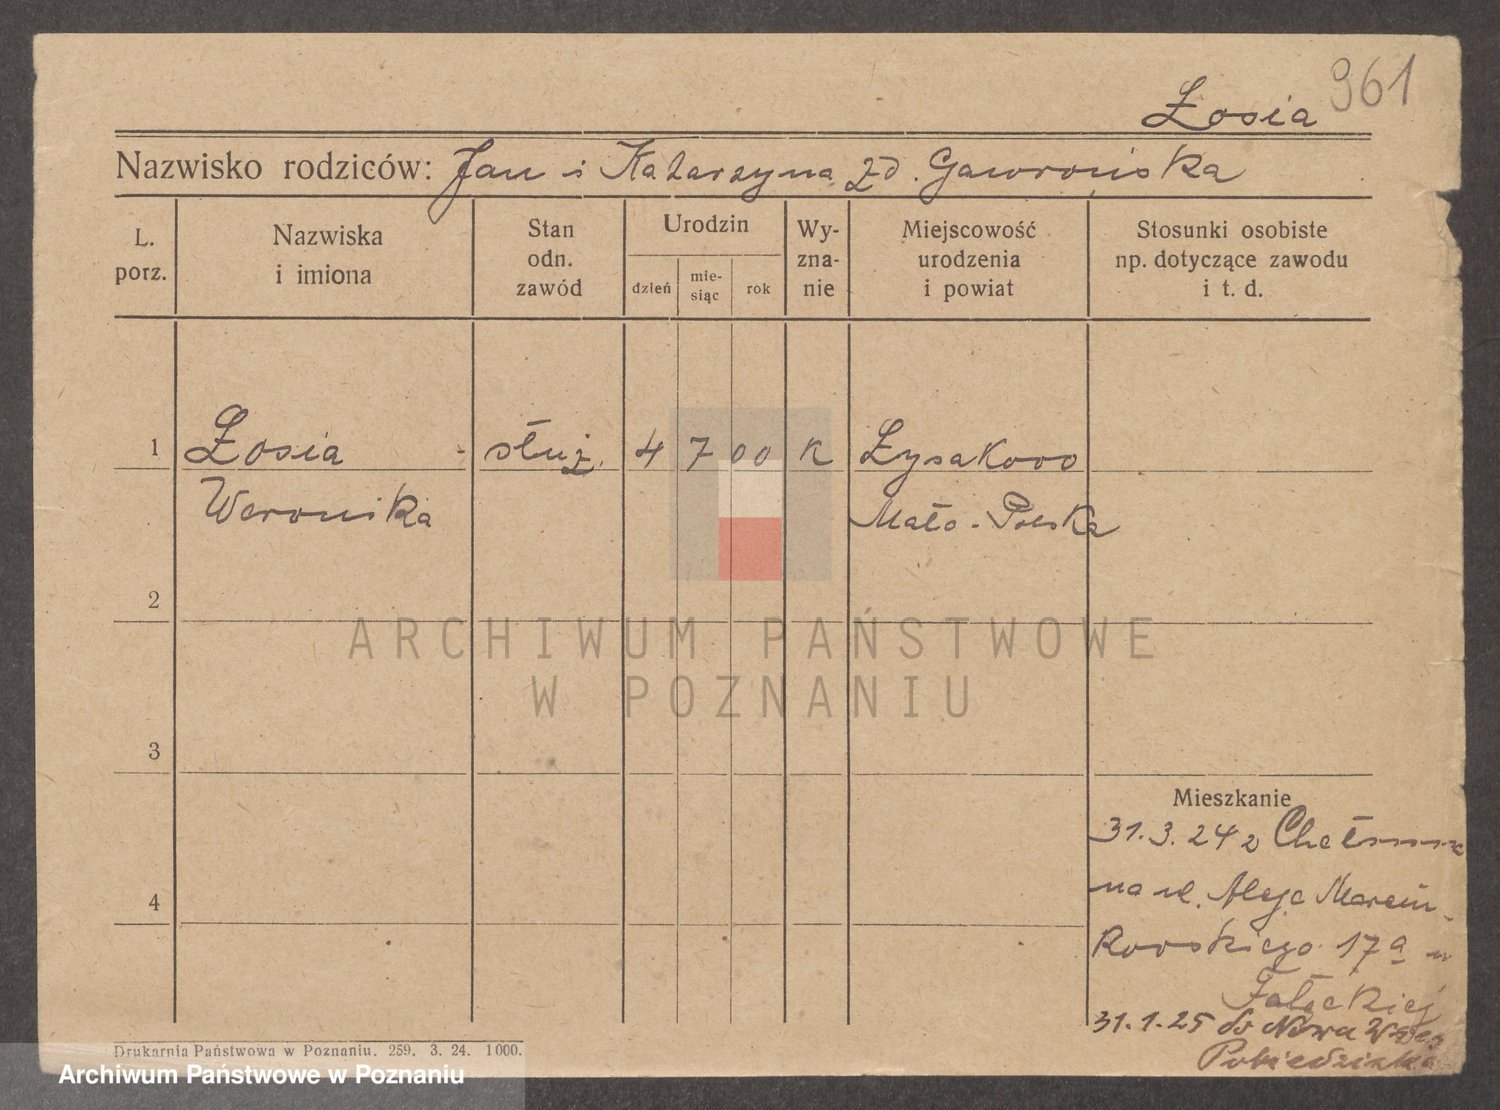 961
Łosia
Nazwisko rodziców: Jan i Katarzyna zd. Gaworońska
L. porz.
Nazwiska i imiona
Stan odn. zawód
Urodzin
dzień
mie-siąc
rok
Wy-zna-nie
Miejscowość urodzenia i powiat
Stosunki osobiste np. dotyczące zawodu i t. d.
1 Łosia służ. 4 7 00 k Łysakowo
Weronika Mało-Polska
2
ARCHIWUM PAŃSTWOWE
W POZNANIU
3
Mieszkanie
31.3.24 z
na ul. Aleje Marcin-
kowskiego 17a u
4
Fałęckiej
31.1.25 do Nowa Wieś
Pobiedziska
Drukarnia Państwowa w Poznaniu. 259. 3. 24. 1000.
Archiwum Państwowe w Poznaniu